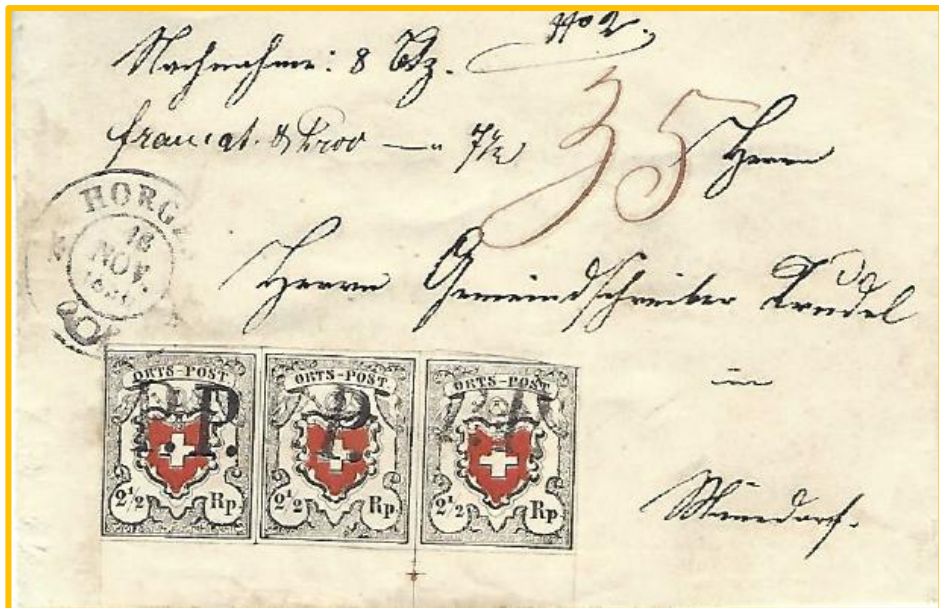 No 2.
Nachnahme: 8 Bz.
francat. & Prov — " 7½
35
Herrn
HORGEN
18
NOV.
Herrn Gemeindschreiber
in
ORTS-POST
P.P.
2½ Rp.
ORTS-POST
P.
2½ Rp.
ORTS-POST
P.P.
2½ Rp.